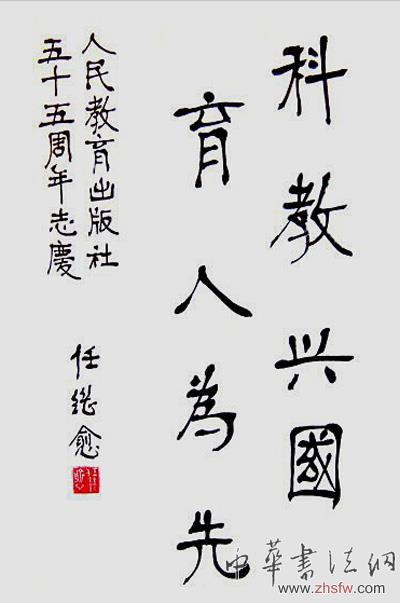 科教兴國
育人為先
人民教育出版社
五十五周年志慶
任继愈
中華書法網
www.zhsfw.com